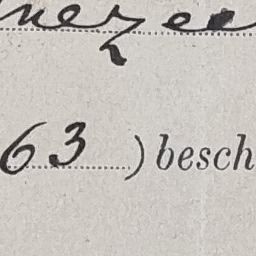 nezee
63 ) besch